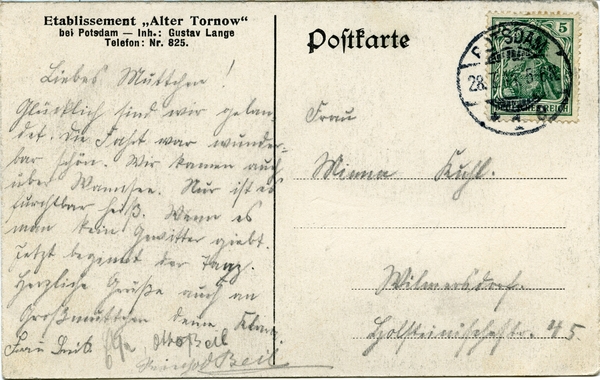 Etablissement „Alter Tornow"
bei Potsdam — Inh.: Gustav Lange
Telefon: Nr. 825.
Postkarte
POTSDAM
28.
5
DEUTSCHES REICH
Liebes Muttchen!
Glücklich sind wir gelan-
det. Die Fahrt war wunder-
bar schön. Wir kamen auch
über Wannsee. Nur ist es
furchtbar heiß. Wenn es
man kein Gewitter giebt.
Jetzt beginnt der Tanz.
Herzliche Grüße auch an
Großmuttchen
Frau
Otto Beil
Beil
Frau
Minna Kuhl.
Wilmersdorf.
Holsteinischestr. 45